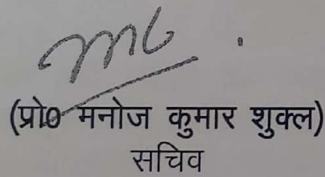 (प्रो0 मनोज कुमार शुक्ल)
सचिव